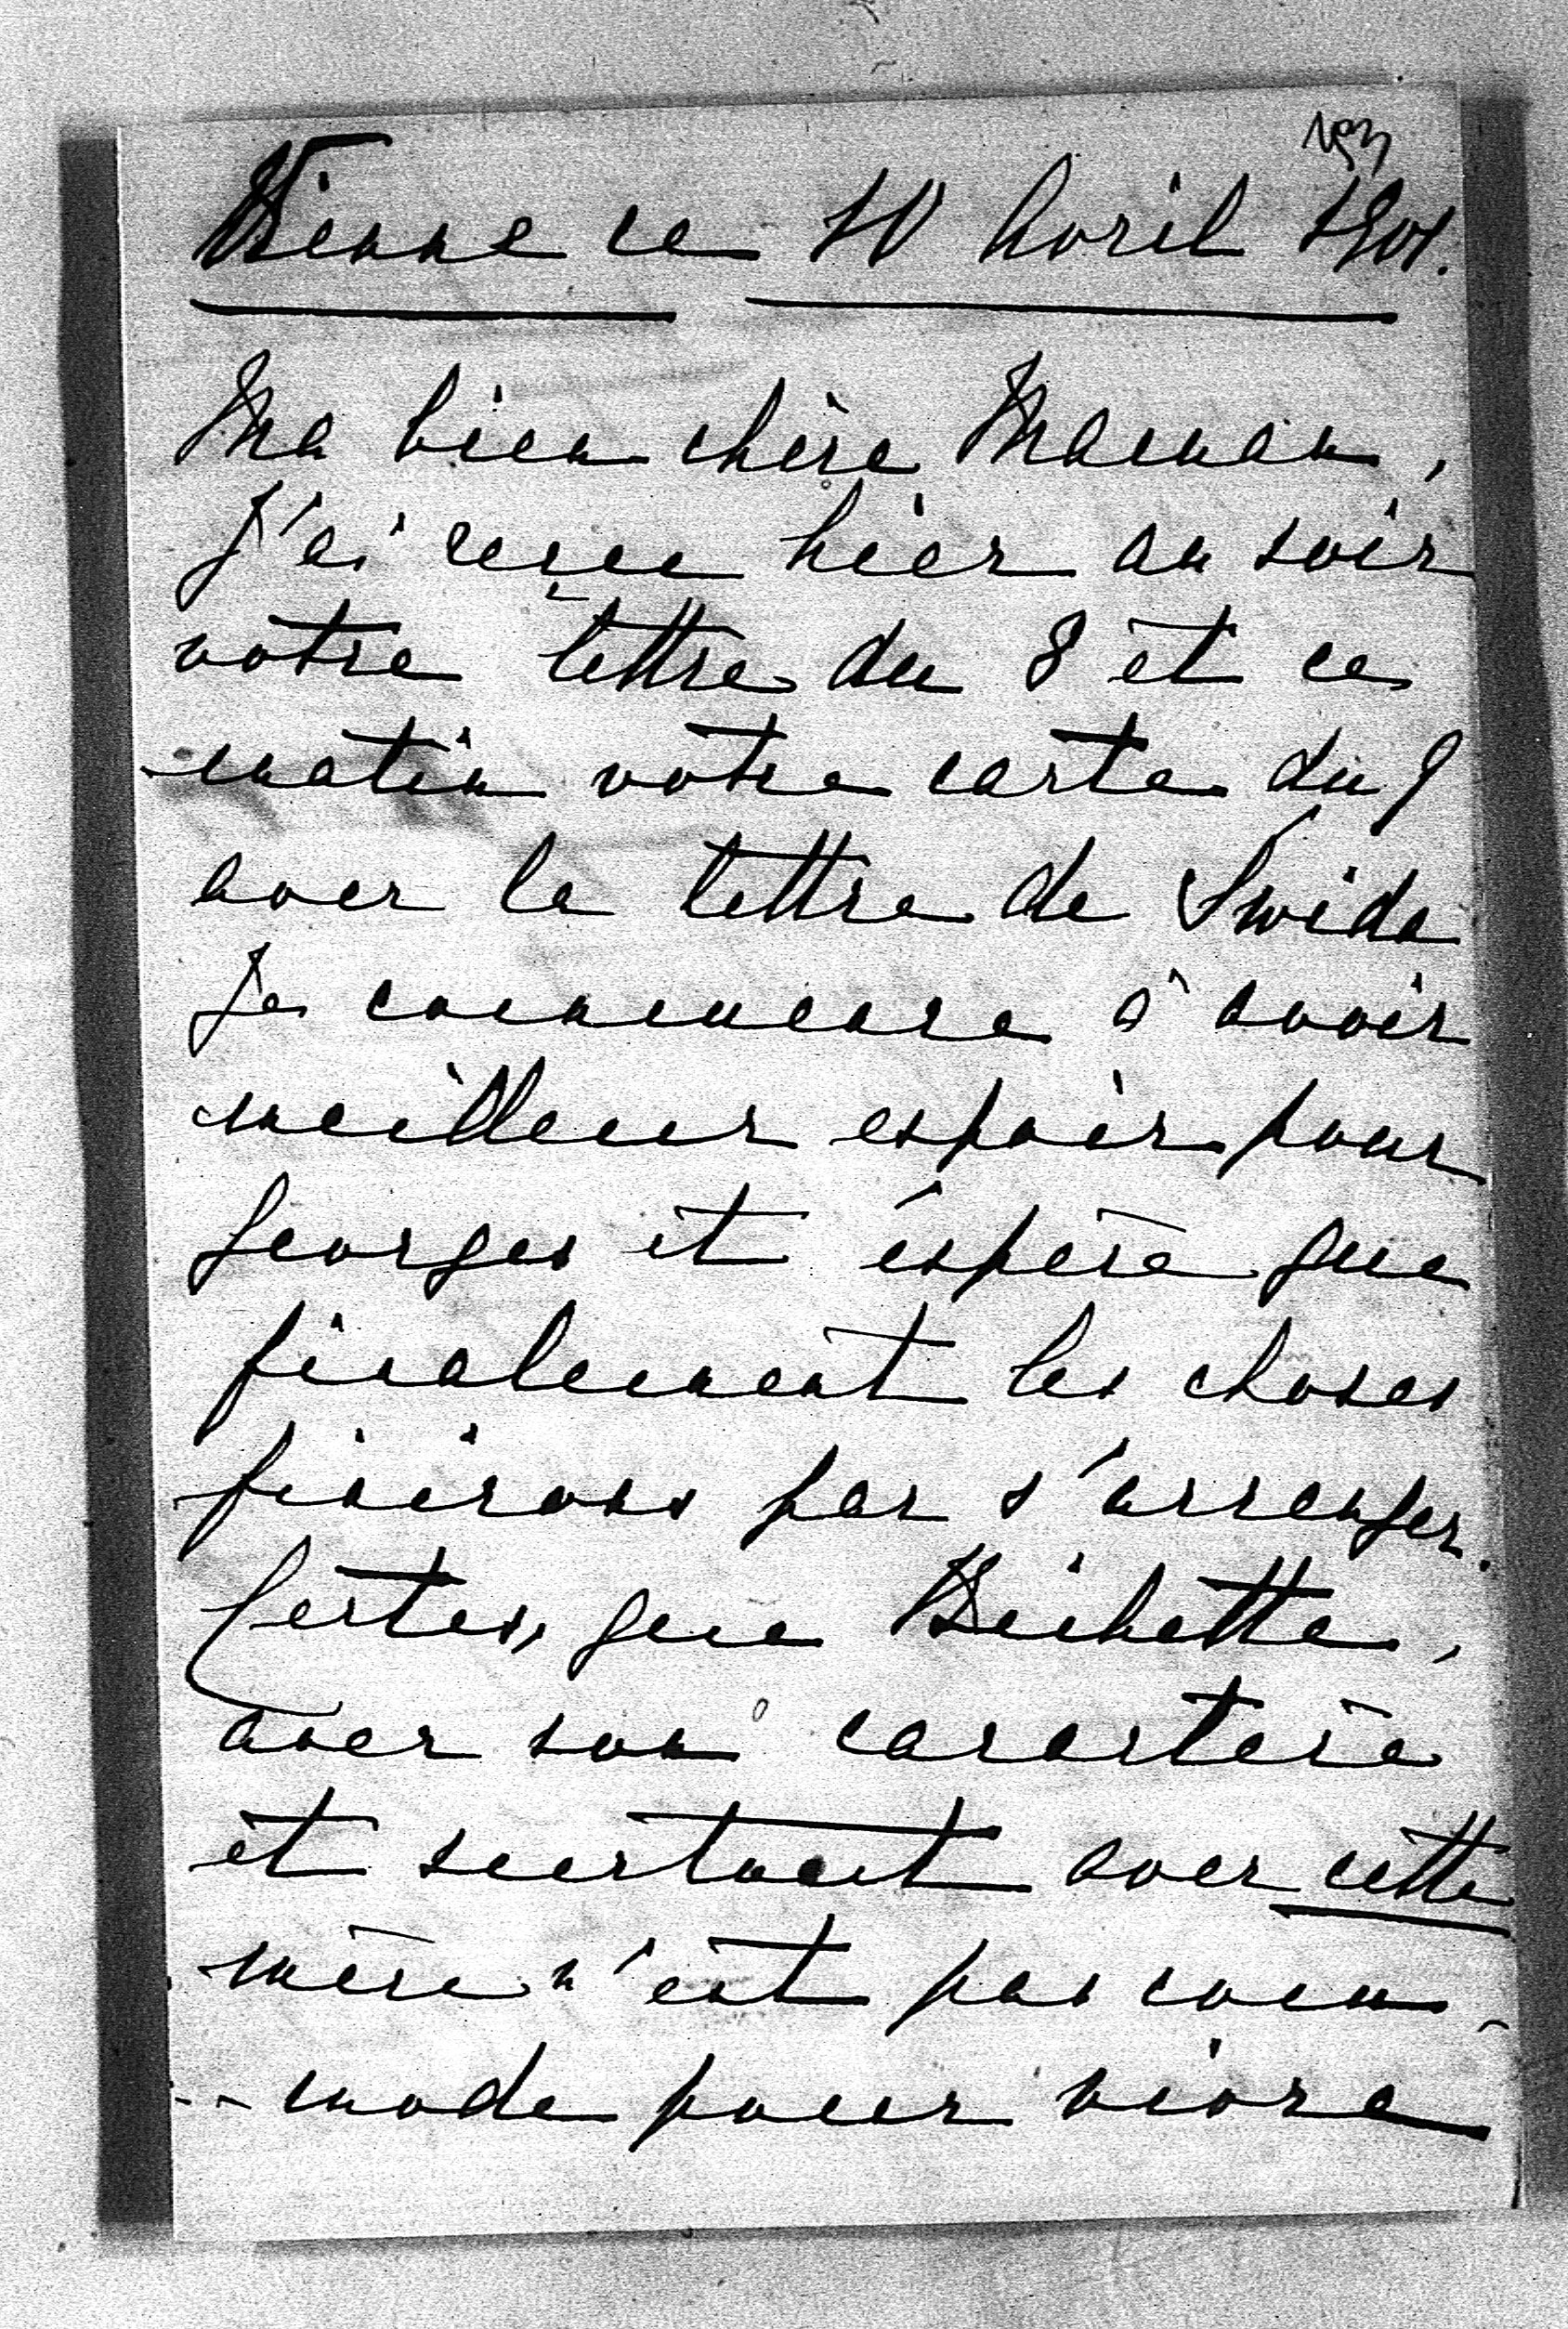 Vienne ce 10 Avril 1901.
Ma bien chère Maman,
J'ai reçu hier au soir
votre lettre du 8 et ce
matin votre carte du 9
avec la lettre de Swida
Je commence à avoir
meilleur espoir pour
Georges et éspère que
finalement les choses
finirons par s'arranger.
Certes, que Bichette,
avec son caractère
et surtout avec cette
mère n'est pas com-
-mode pour vivre